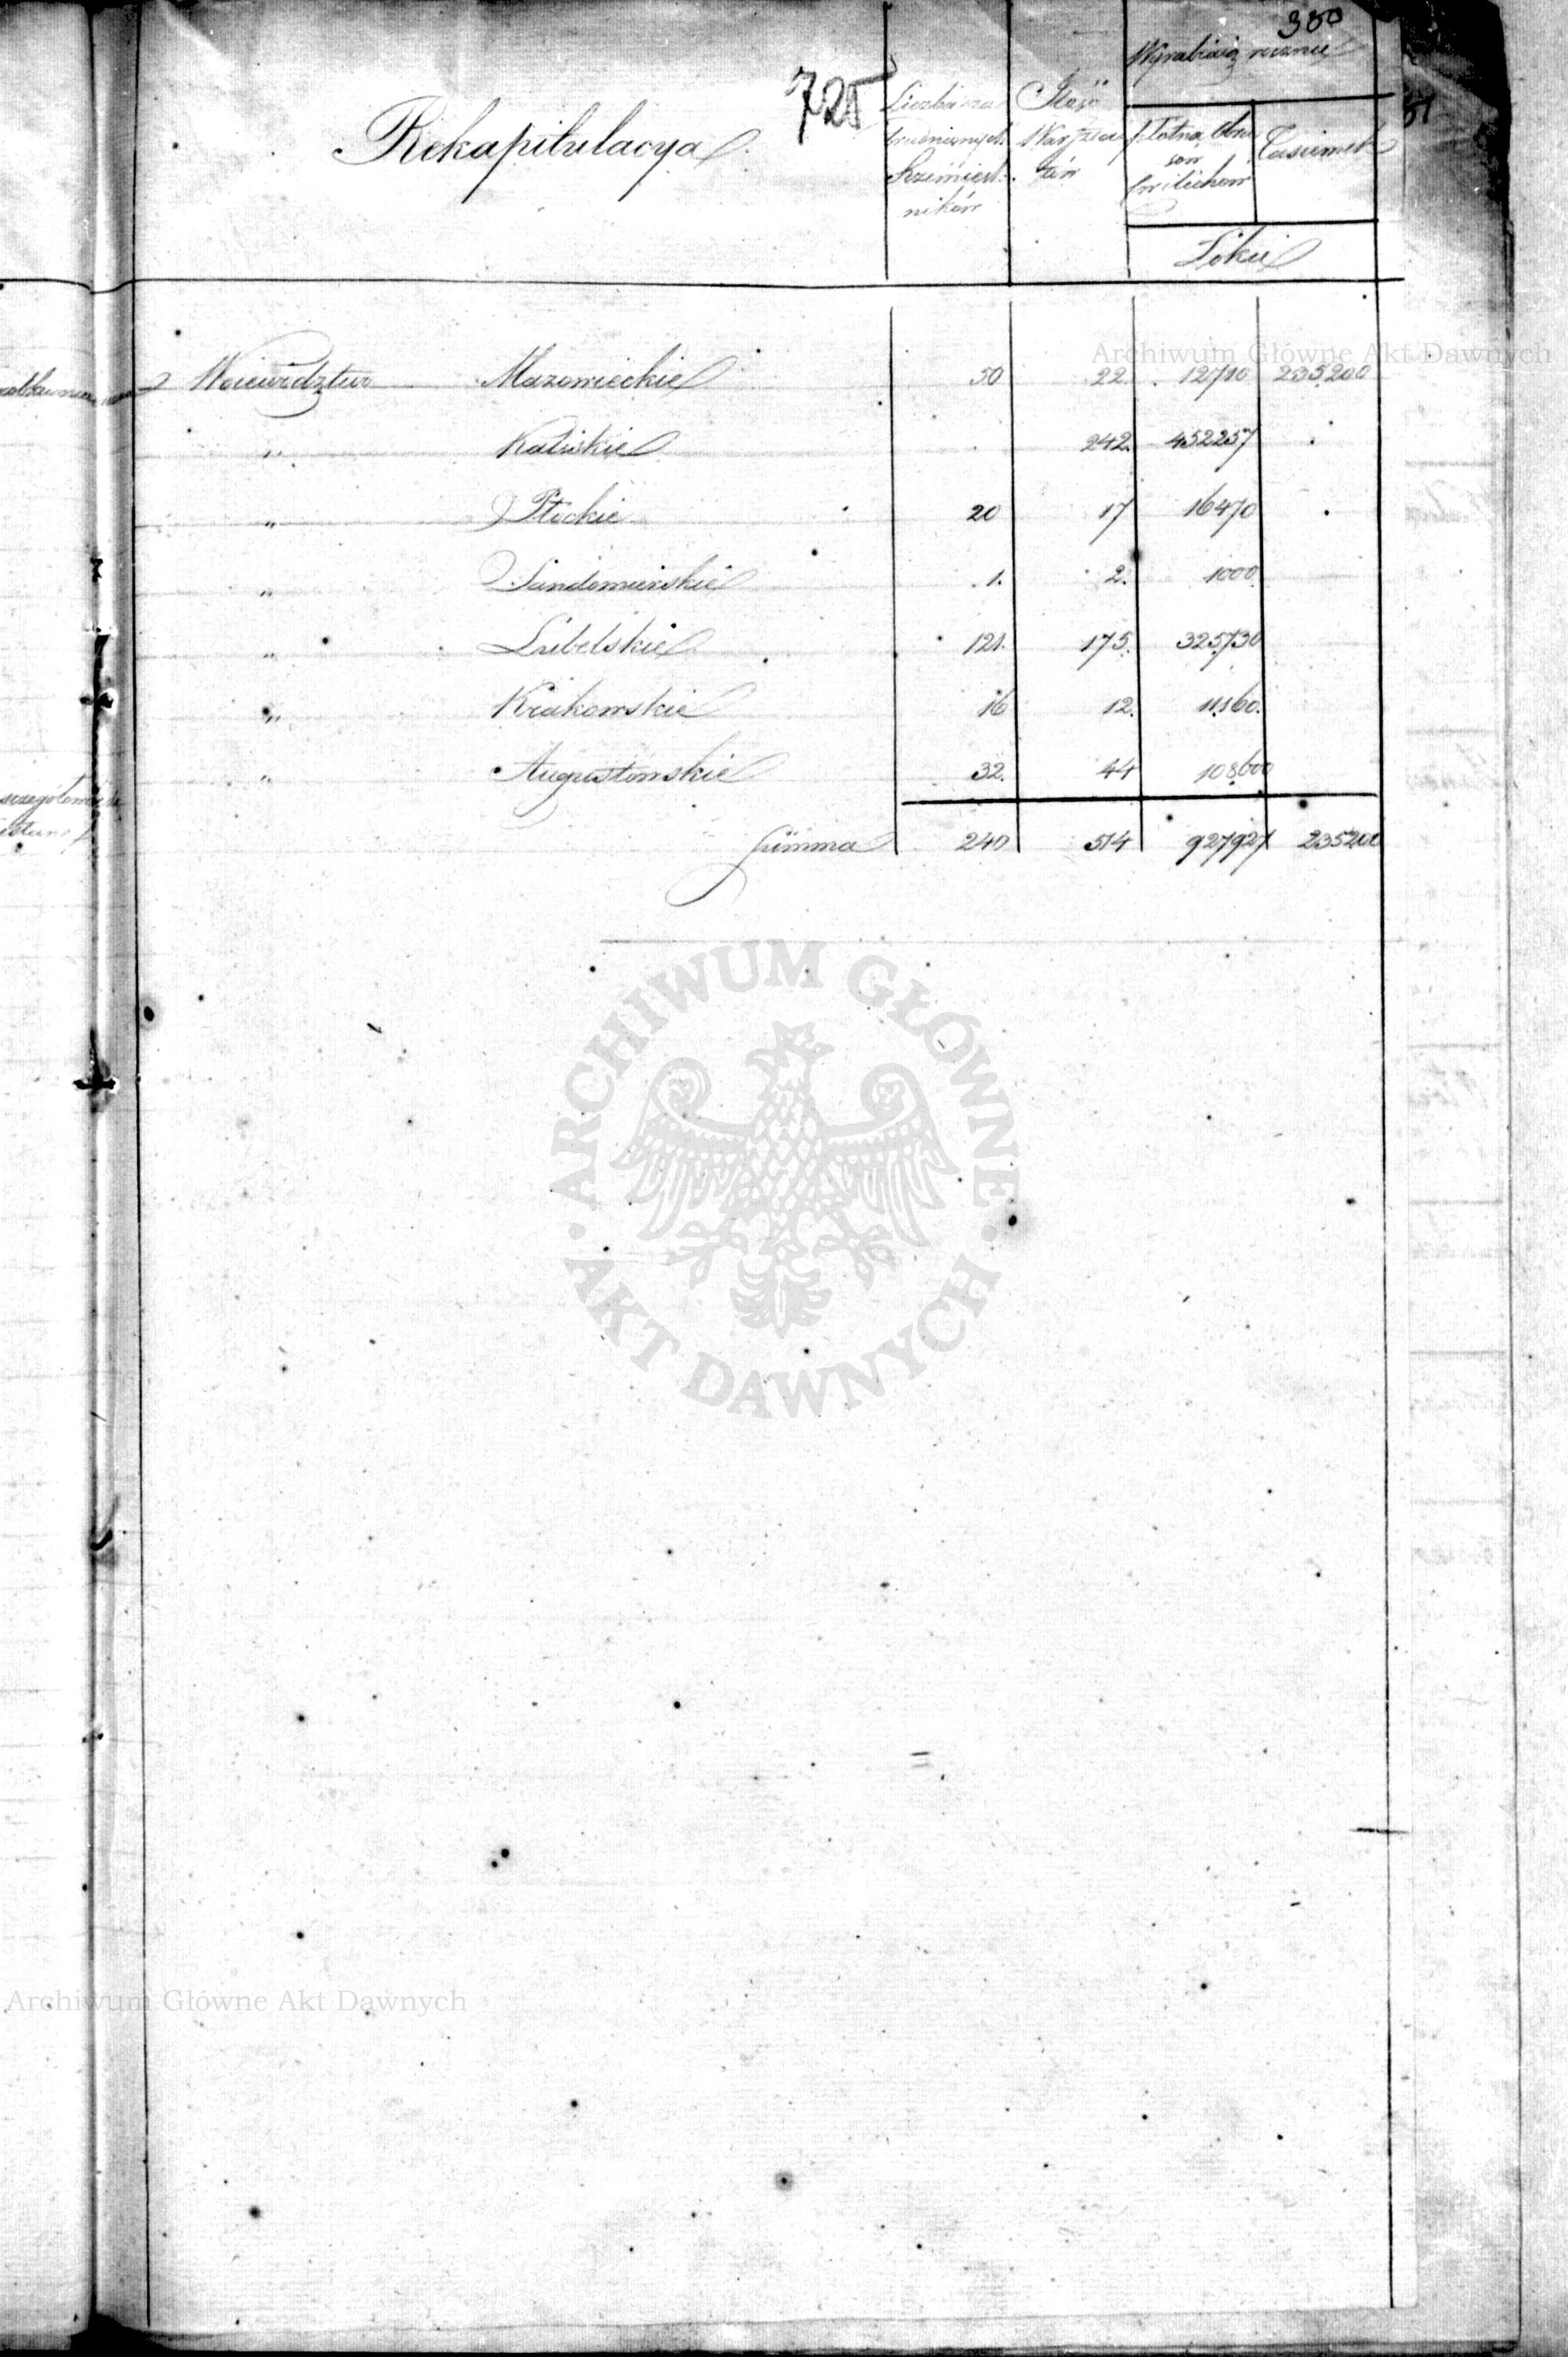 350
725
51
Rekapitulacya
Liczba za
trudnionych
Rzemieśl-
ników
Ilość
Warszta
tów
Wyrabiaią rocznie
Płotna, Obru
sow
Cwilichow
Tasiemek
Łokci
Archiwum Główne Akt Dawnych
Woiewództwo Mazowieckie 50 22. 12710 235200
" Kaliskie . 242. 452257 .
" Płockie 20 17 16470 .
" Sandomierskie 1. 2. 1000
" Lubelskie 121. 175. 325730
" Krakowskie 16 12. 11160.
" Augustowskie 32. 44 108600
Summa 240 514 927927 235200
ARCHIWUM GŁÓWNE
AKT DAWNYCH
Archiwum Główne Akt Dawnych